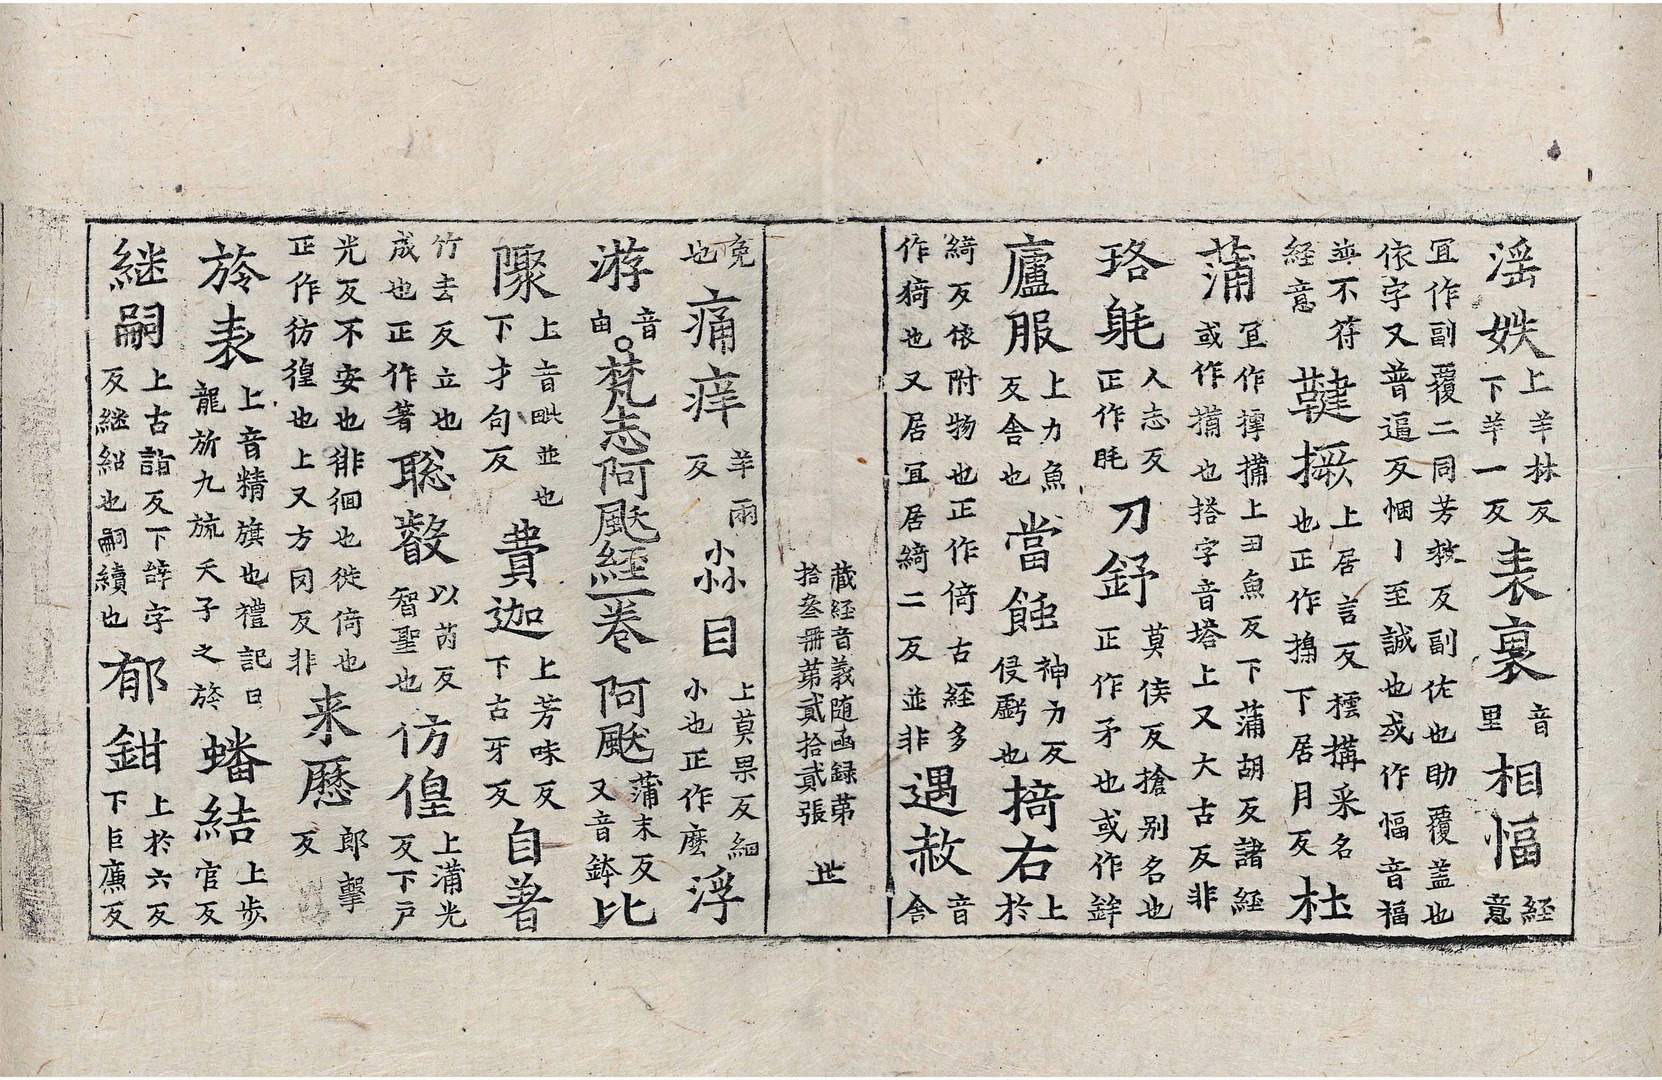 淫妷上羊林反下羊一反表裏音里相愊經意
冝作副覆二同芳救反副佐也助覆盖也依字又普逼反悃丨至誠也或作愊音福
並不符經意鞬撅上居言反樗搆采名也正作撝下居月反杜
蒲冝作摴蒱上丑魚反下蒲胡反諸經或作搆也搭字音塔上又大古反非
珞毦人志反正作毦刀釨莫侯反搶别名也正作矛也或作鉾
廬服上力魚反舍也當蝕神力反侵虧也掎右上於
綺反依附物也正作倚古經多作猗也又居冝居綺二反並非遇赦音舍
藏經音義随函録第
拾叁冊第貳拾貳張 世
兔也痛痒羊兩反尛目上莫果反細小也正作麽浮
游音由○梵志阿颰經一卷 阿颰蒲末反又音鉢比
隟上音毗並也下才句反費迦上芳味反下古牙反自著
竹去反立也成也正作著聡叡以芮反智聖也仿偟上蒲光反下户
光反不安也徘徊也徙倚也正作彷徨也上又方冈反非来歷郎擊反
旍表上音精旗也禮記曰龍旂九旒天子之旍蟠結上步官反
継嗣上古詣反下辝字反継紹也嗣續也郁鉗上於六反下巨廉反